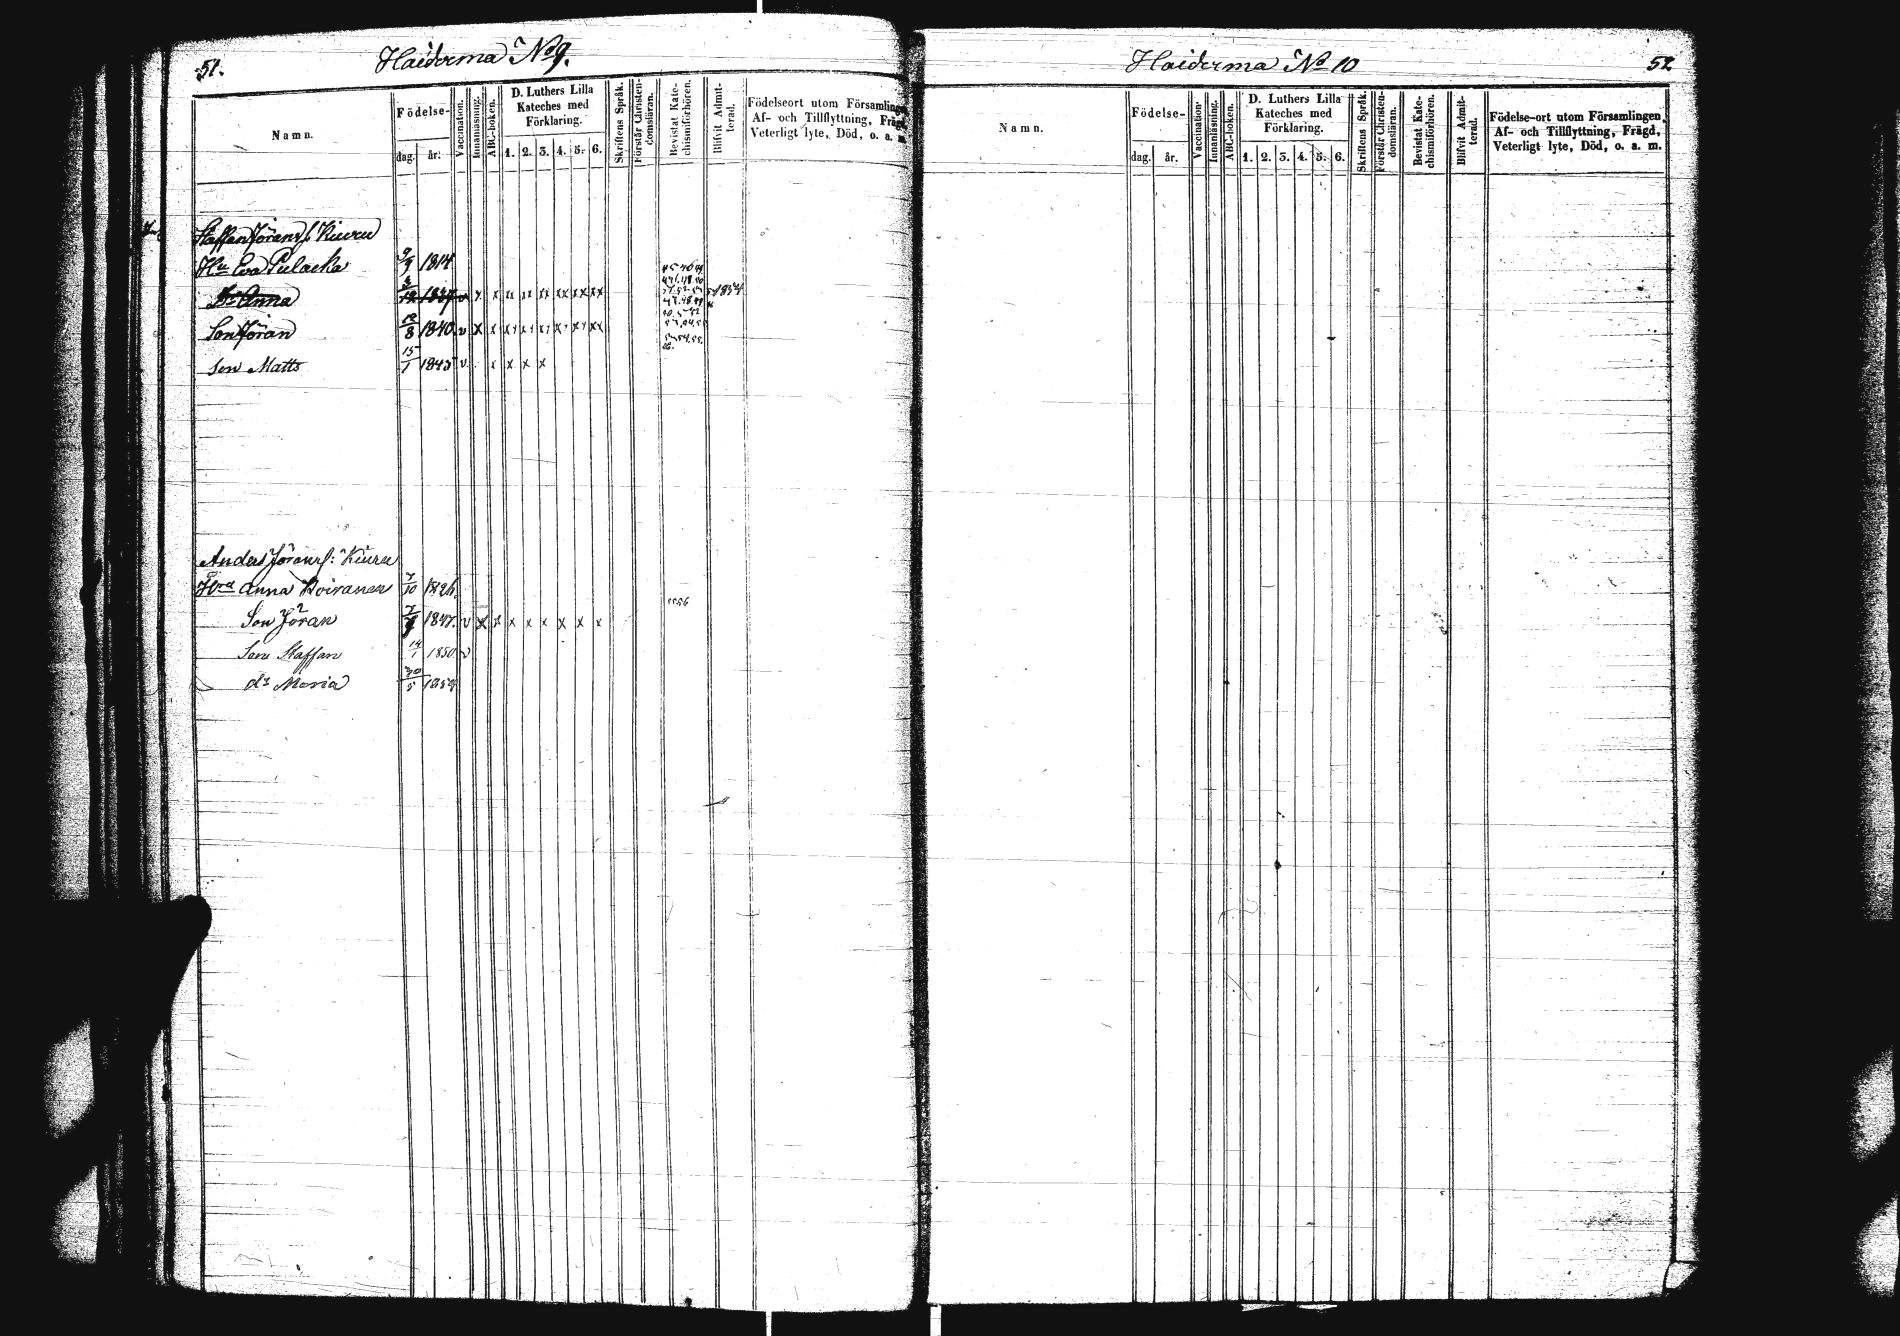 51.
Haiderma No 9.
Namn.
Födelse-
dag. år.
Vaccination.
Innanläsning.
ABC-boken.
D. Luthers Lilla
Kateches med
Förklaring.
1. 2. 3. 4. 5. 6.
Skriftens Språk.
Förstår Christen-
domsläran.
Bevistat Kate-
chismiförhören.
Blifvit Admit-
terad.
Födelseort utom Församlingen
Af- och Tillflyttning, Frägd,
Veterligt lyte, Död, o. a. m.
Staffan Jörans s. Kiuru
Hu Eva Pulacka 1814
Dr Anna 1837 v x x xx xx xx xx xx xx 1854
Son Jöran 8 1840. v x x
Son Matts 15/1 1845 v x x x x
Anders Jörans s: Kiuru
Hru Anna Koivanen 7/10 1826.
Son Jöran 1847. v x x x x x x x x
Son Staffan 14/1 1850 v
dr Maria 30/5 1854
Haiderma No 10
52
Namn.
Födelse-
dag. år.
Vaccination.
Innanläsning.
ABC-boken.
D. Luthers Lilla
Kateches med
Förklaring.
1. 2. 3. 4. 5. 6.
Skriftens Språk.
Förstår Christen-
domsläran.
Bevistat Kate-
chismiförhören.
Blifvit Admit-
terad.
Födelse-ort utom Församlingen,
Af- och Tillflyttning, Frägd,
Veterligt lyte, Död, o. a. m.